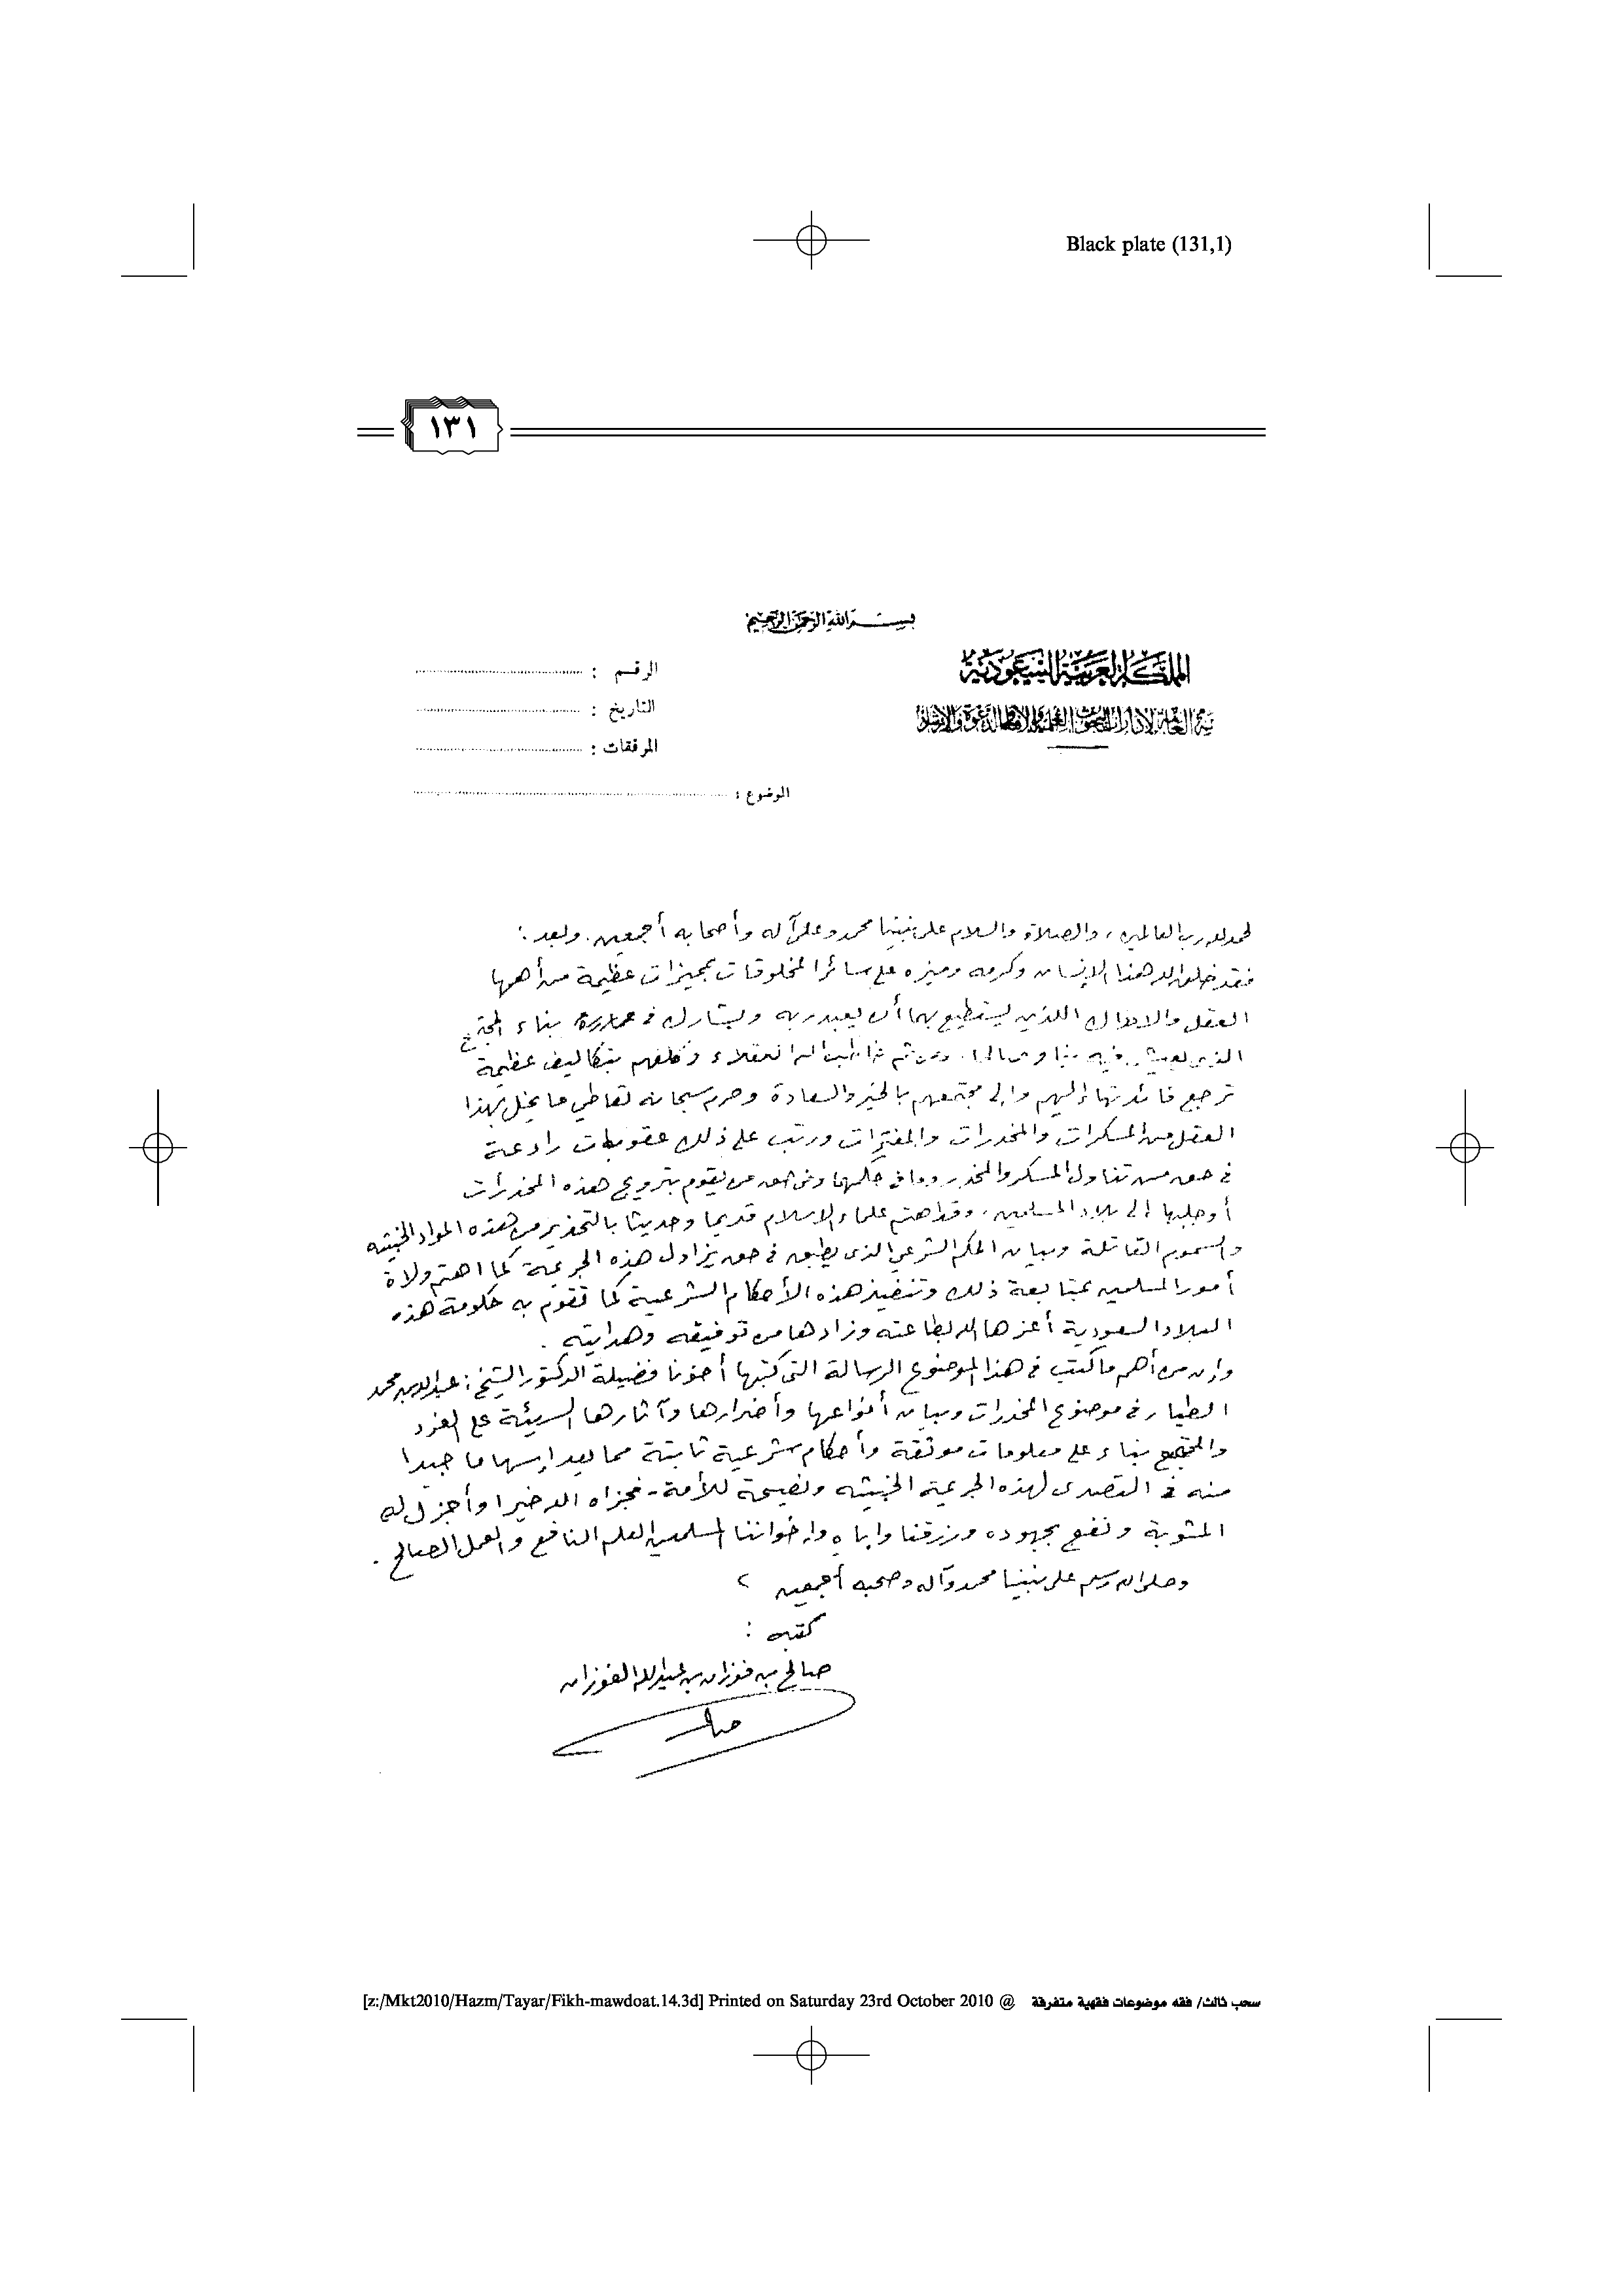 Black plate (131,1)
١٣١
بسم الله الرحمن الرحيم
المملكة العربية السعودية
الرقم :
العامة لإدارات البحوث العلمية والإفتاء والدعوة والإرشاد
التاريخ :
المرفقات :
الموضوع :
لحمد لله رب العالمين، والصلاة والسلام على نبينا محمد وعلى آله وأصحابه أجمعين. وبعد :
فقد خلق الله هذا الإنسان وكرمه وميزه على سائر المخلوقات بمميزات عظيمة من أهمها
العقل والإدراك اللذين يستطيع بهما أن يعبد ربه ويشارك في بناء المجتمع
الذي يعيش فيه خاطب الله العقلاء وكلفهم بتكاليف عظيمة
ترجع فائدتها إليهم وإلى مجتمعهم بالخير والسعادة وحرم سبحانه تعاطي ما يخل بهذا
العقل من المسكرات والمخدرات والمفترات ورتب على ذلك عقوبات رادعة
في حق من تناول المسكر والمخدر وفي حق من يقوم بترويج هذه المخدرات
أو جلبها إلى بلاد المسلمين، وقد اهتم علماء الإسلام قديما وحديثا بالتحذير من هذه المواد الخبيثة
والسموم القاتلة وبيان الحكم الشرعي الذي يطبق في حق يزاول هذه الجريمة كما اهتم ولاة
أمور المسلمين بمتابعة ذلك وتنفيذ هذه الأحكام الشرعية كما تقوم به حكومة هذه
البلاد السعودية أعزها الله بطاعته وزادها من توفيقه وهدايته .
وإن من أهم ما كتب في هذا الموضوع الرسالة التي كتبها أخونا فضيلة الدكتور الشيخ : عبدالله بن محمد
الطيار في موضوع المخدرات وبيان أنواعها وأضرارها وآثارها السيئة على الفرد
والمجتمع بناء على معلومات موثقة وأحكام شرعية ثابتة مما يعد إسهاما جيدا
منه في التصدي لهذه الجريمة الخبيثه ونصيحة للأمة - فجزاه الله خيرا وأجزل له
المثوبة ونفع بجهوده ورزقنا وإياه وإخواننا المسلمين العلم النافع والعمل الصالح .
وصلى الله وسلم على نبينا محمد وآله وصحبه أجمعين
كتبه :
صالح بن فوزان بن عبدالله الفوزان
صالح
[z:/Mkt2010/Hazm/Tayar/Fikh-mawdoat.14.3d] Printed on Saturday 23rd October 2010 @ سحب ثالث/ فقه موضوعات فقهية متفرقة